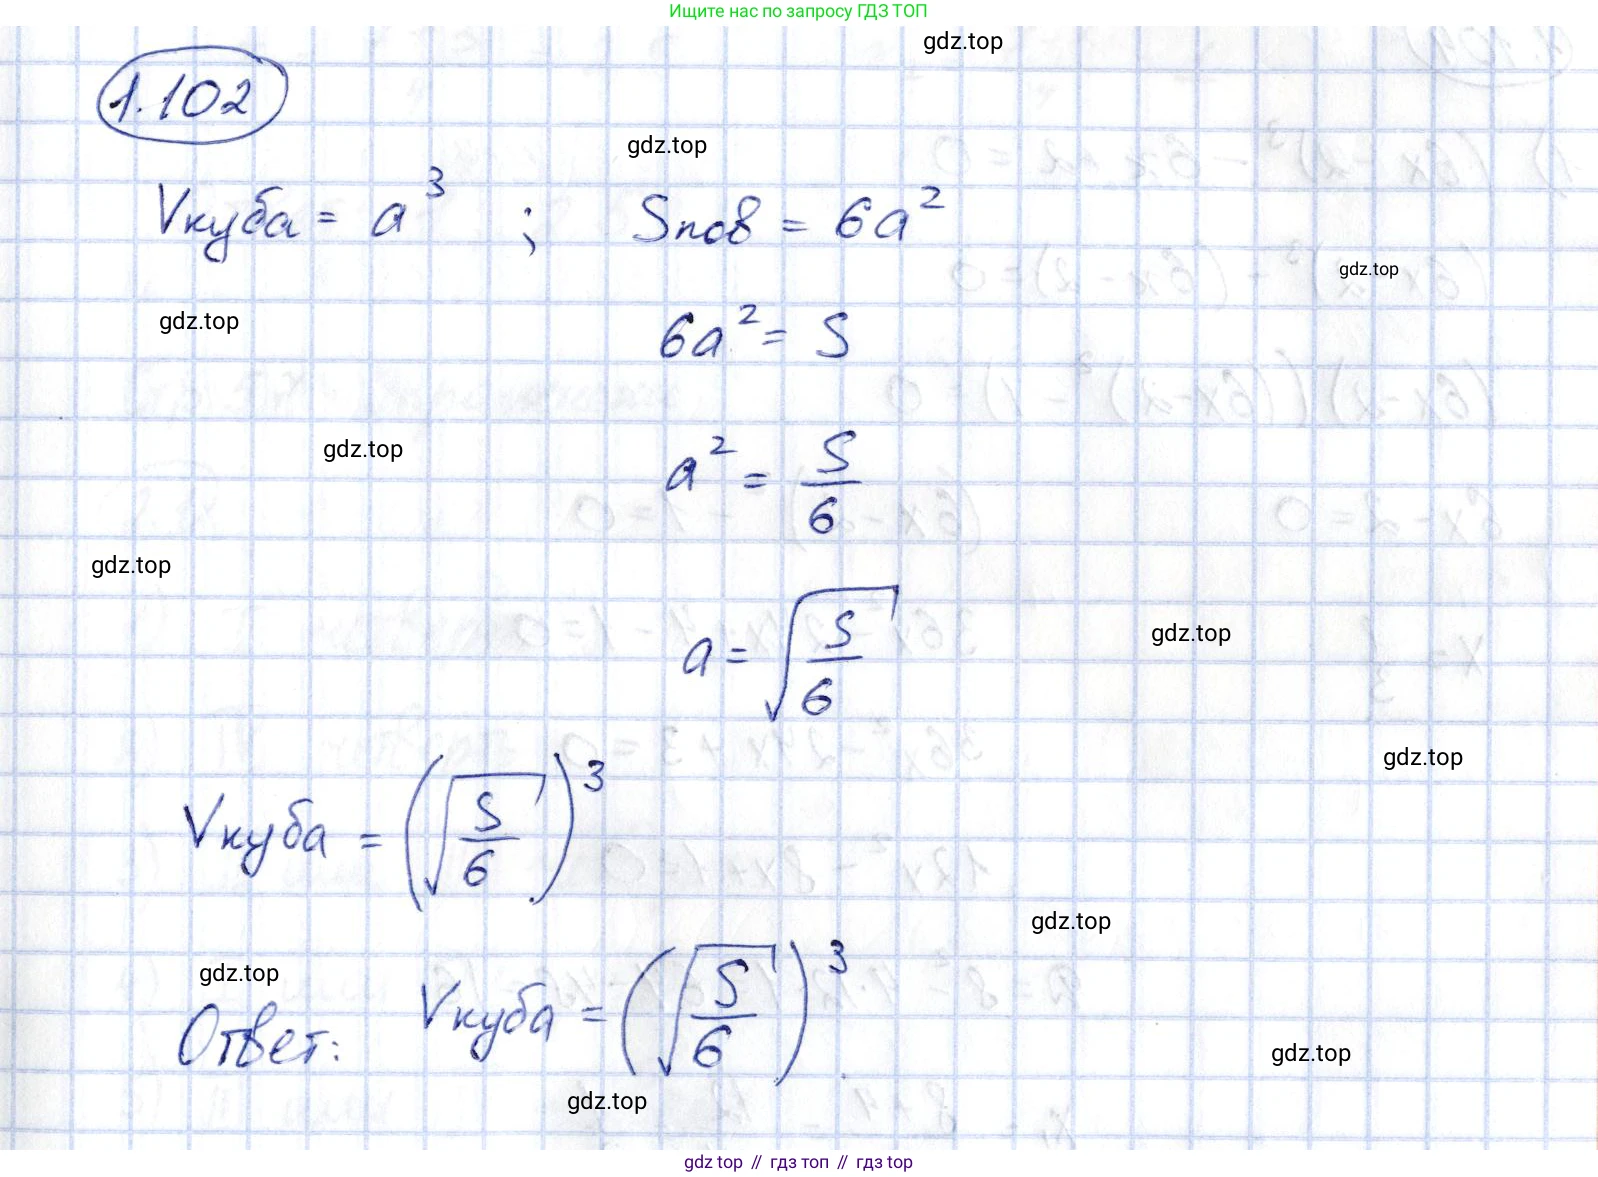 Ищите нас по запросу ГДЗ ТОП
gdz.top
1.102
gdz.top
Vкуба = a³ ; Sпов = 6a²
gdz.top
gdz.top
6a² = S
gdz.top
a² = S/6
gdz.top
gdz.top
a = √(S/6)
gdz.top
Vкуба = (√(S/6))³
gdz.top
gdz.top
Ответ: Vкуба = (√(S/6))³
gdz.top
gdz.top
gdz top // гдз топ // gdz.top